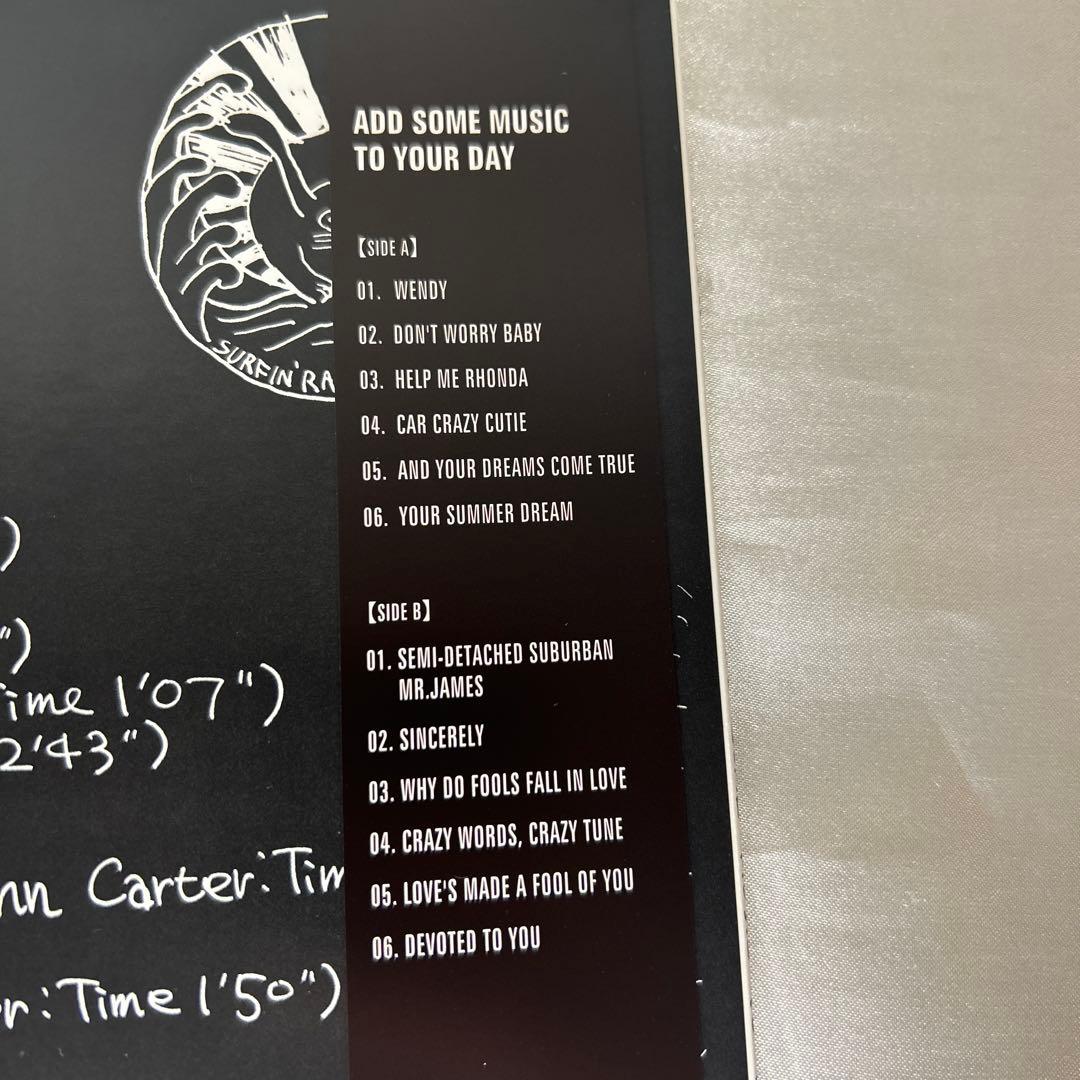 SURFIN'
ADD SOME MUSIC
TO YOUR DAY
【SIDE A】
01. WENDY
02. DON'T WORRY BABY
03. HELP ME RHONDA
04. CAR CRAZY CUTIE
05. AND YOUR DREAMS COME TRUE
06. YOUR SUMMER DREAM
【SIDE B】
01. SEMI-DETACHED SUBURBAN
MR.JAMES
02. SINCERELY
03. WHY DO FOOLS FALL IN LOVE
04. CRAZY WORDS, CRAZY TUNE
05. LOVE'S MADE A FOOL OF YOU
06. DEVOTED TO YOU
)
")
ime 1'07")
2'43")
nn Carter:Tim
r:Time 1'50")